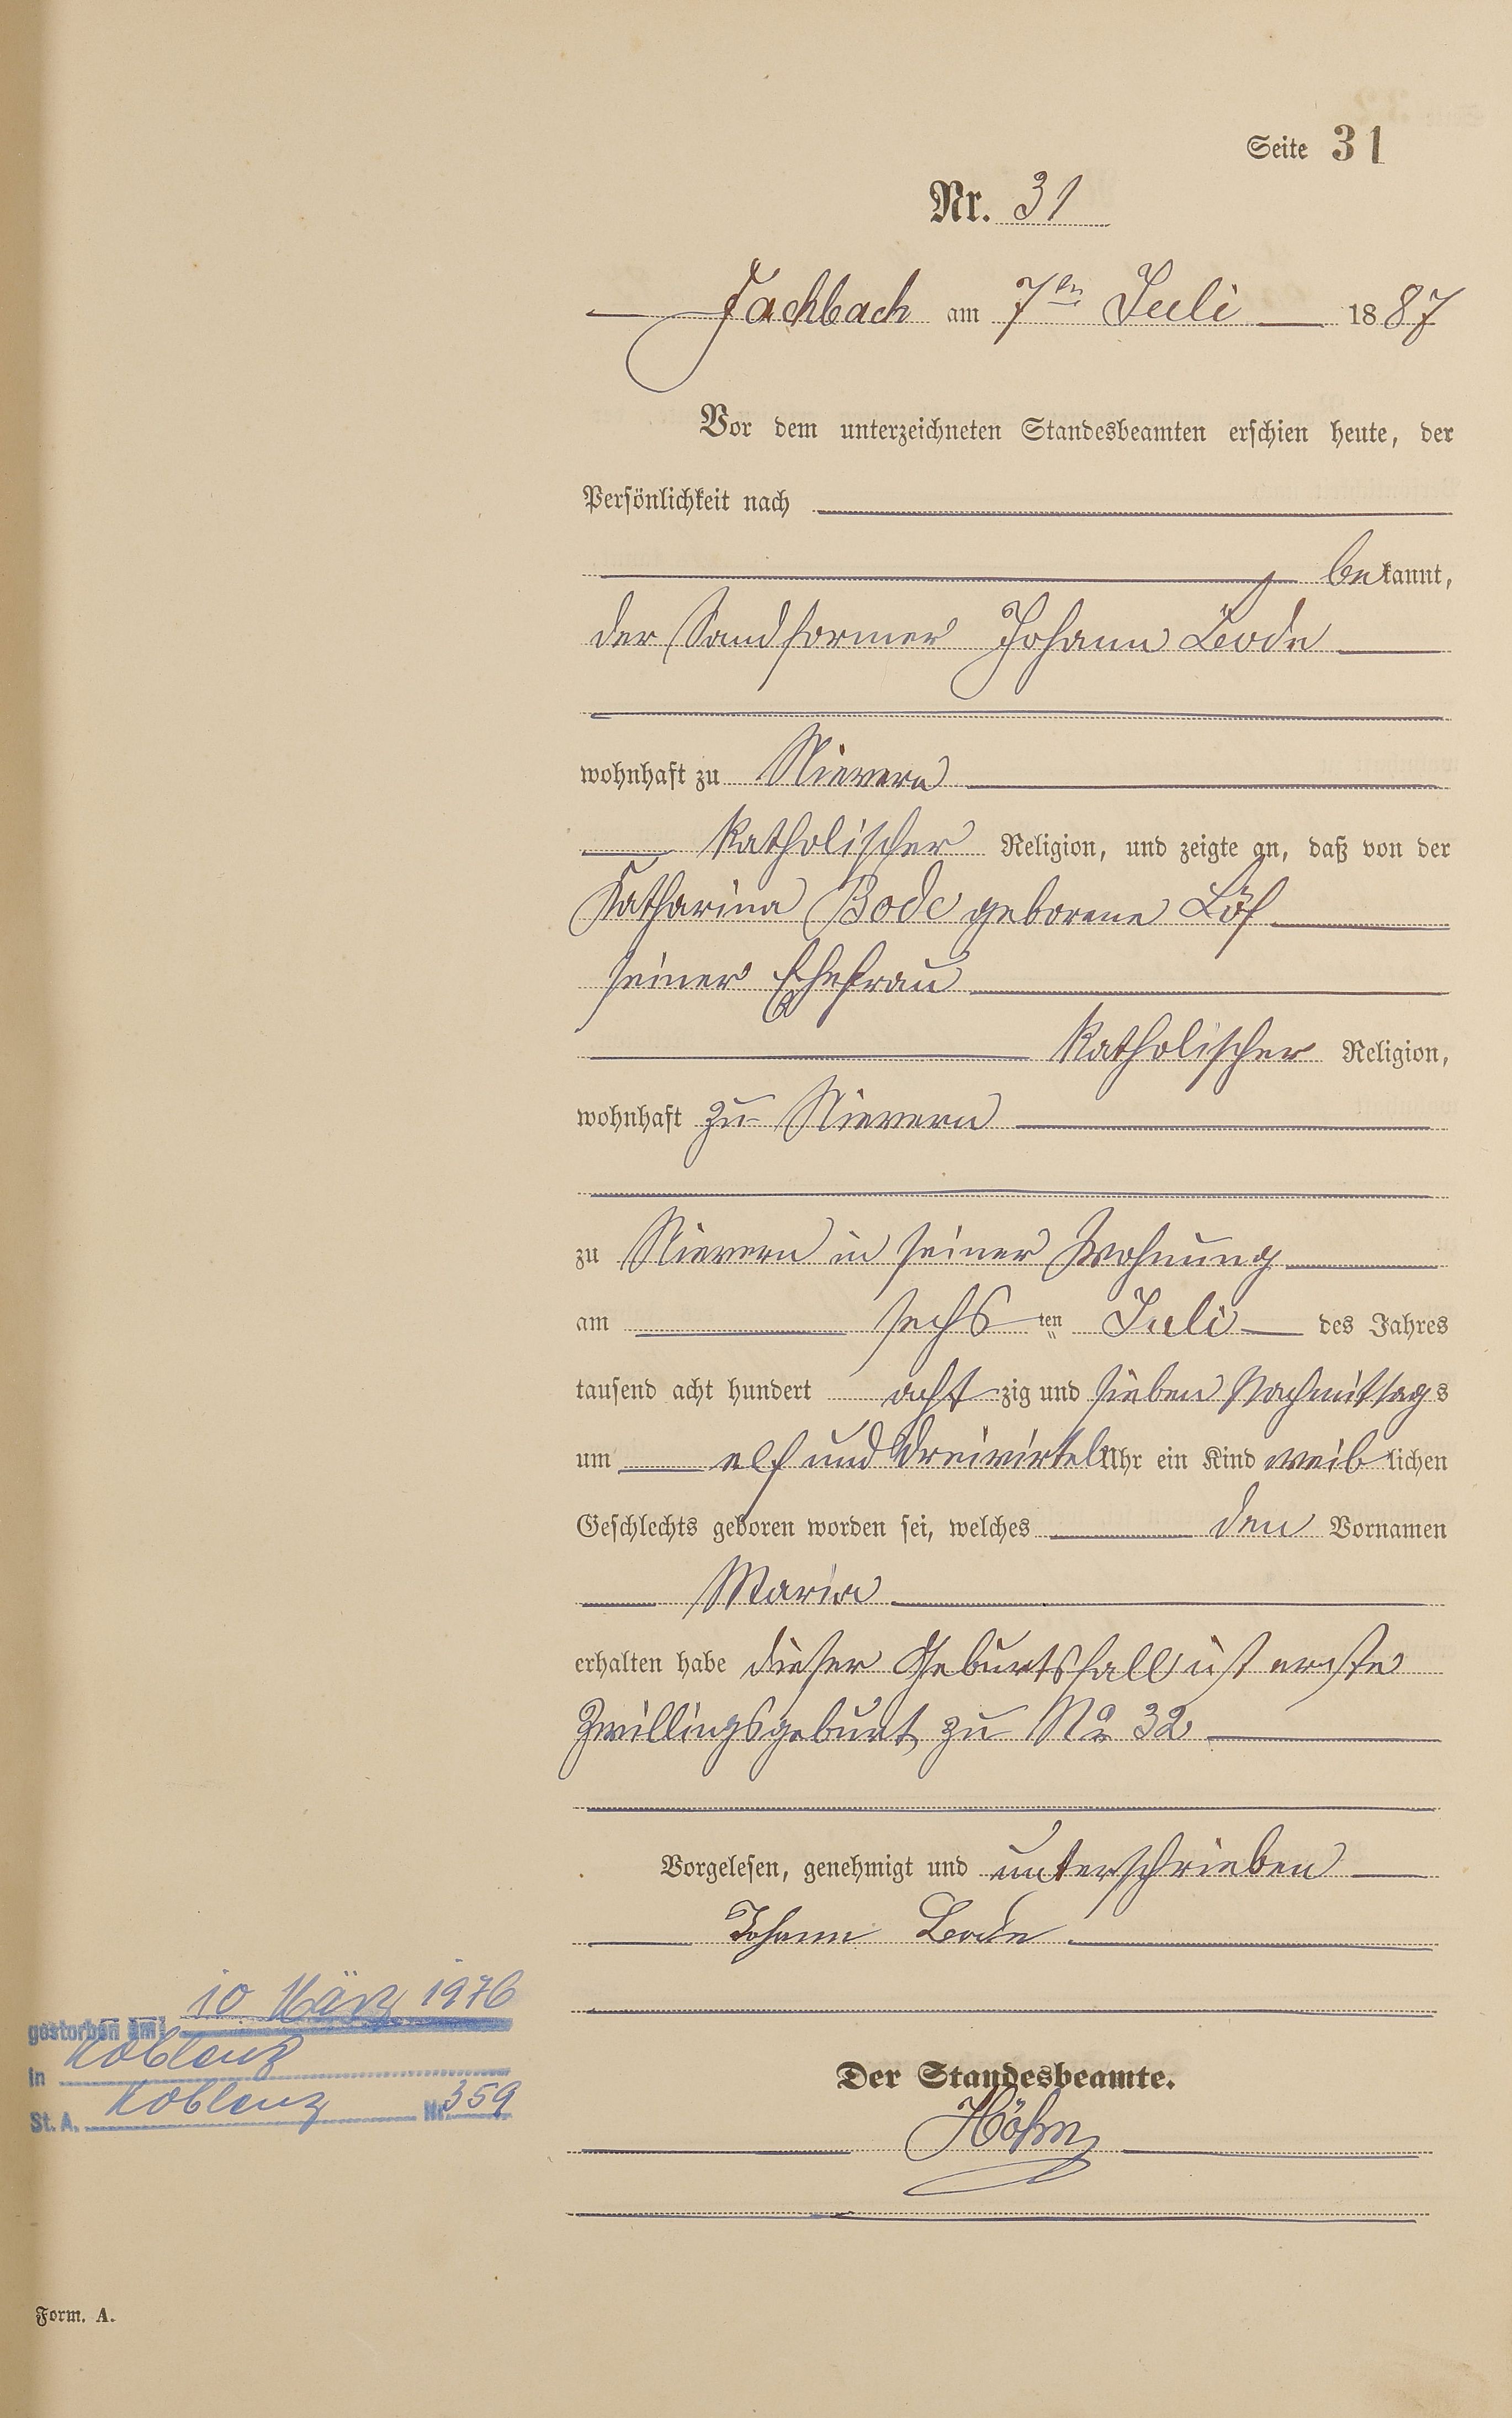 Seite 31
Nr. 31
Fachbach am 7ten Juli 1887
Vor dem unterzeichneten Standesbeamten erschien heute, der
Persönlichkeit nach
bekannt,
der Sandformer Johann Bode
wohnhaft zu Nievern
katholischer Religion, und zeigte an, daß von der
Katharina Bode geborene Löf
seiner Ehefrau
katholischer Religion,
wohnhaft zu Nievern
zu Nievern in seiner Wohnung
am sechsten Juli des Jahres
tausend acht hundert achtzig und sieben Nachmittags
um elf und dreivirtel Uhr ein Kind weiblichen
Geschlechts geboren worden sei, welches den Vornamen
Maria
erhalten habe dieser Geburtsfall ist erste
Zwillingsgeburt zu No 32
Vorgelesen, genehmigt und unterschrieben
Johann Bode
gestorben am: 10 März 1976
in Koblenz
St. A. Koblenz Nr. 359
Der Standesbeamte.
Höhn
Form. A.